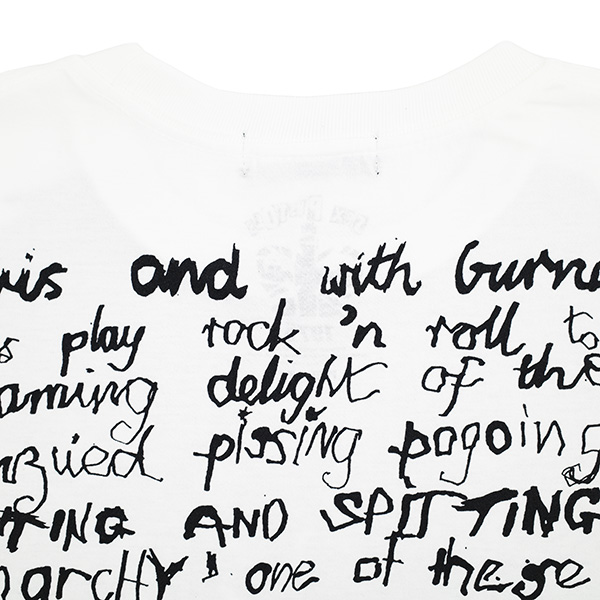 and with Gurn
play rock 'n roll to
aming delight of the
nzuied pissing pogoing
TING AND SPITTING
narcHY' one of these